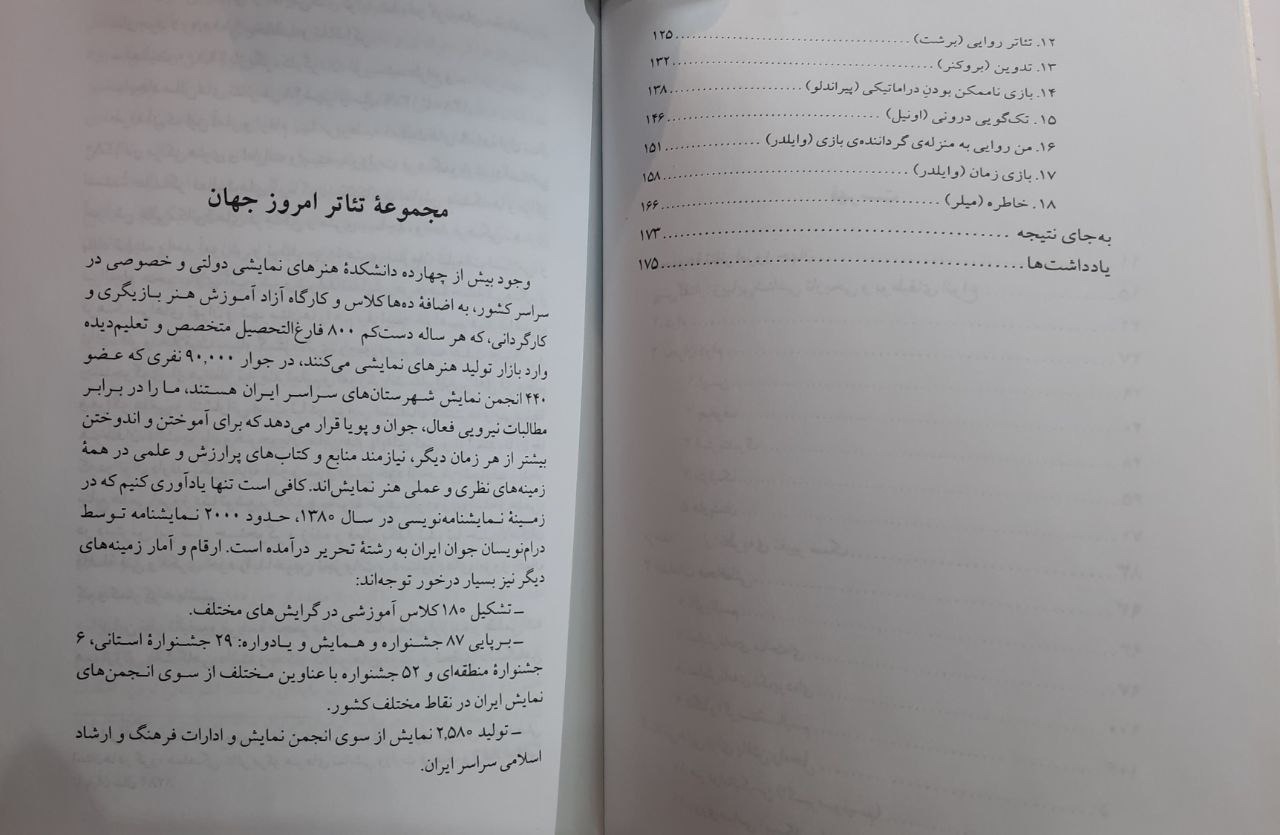 ۱۲. تئاتر روایی (برشت) ........ ۱۲۵
۱۳. تدوین (بروکنر) ........ ۱۳۲
۱۴. بازی ناممکن بودنِ دراماتیکی (پیراندلو) ........ ۱۳۸
۱۵. تک‌گویی درونی (اونیل) ........ ۱۴۶
۱۶. من روایی به منزله‌ی گرداننده‌ی بازی (وایلدر) ........ ۱۵۱
۱۷. بازی زمان (وایلدر) ........ ۱۵۸
۱۸. خاطره (میلر) ........ ۱۶۶
به‌جای نتیجه ........ ۱۷۳
یادداشت‌ها ........ ۱۷۵
مجموعهٔ تئاتر امروز جهان
وجود بیش از چهارده دانشکدهٔ هنرهای نمایشی دولتی و خصوصی در
سراسر کشور، به اضافهٔ ده‌ها کلاس و کارگاه آزاد آموزش هنر بازیگری و
کارگردانی، که هر ساله دست‌کم ۸۰۰ فارغ‌التحصیل متخصص و تعلیم‌دیده
وارد بازار تولید هنرهای نمایشی می‌کنند، در جوار ۹۰,۰۰۰ نفری که عضو
۴۴۰ انجمن نمایش شهرستان‌های سراسر ایران هستند، ما را در برابر
مطالبات نیرویی فعال، جوان و پویا قرار می‌دهد که برای آموختن و اندوختن
بیشتر از هر زمان دیگر، نیازمند منابع و کتاب‌های پرارزش و علمی در همهٔ
زمینه‌های نظری و عملی هنر نمایش‌اند. کافی است تنها یادآوری کنیم که در
زمینهٔ نمایشنامه‌نویسی در سال ۱۳۸۰، حدود ۲۰۰۰ نمایشنامه توسط
درام‌نویسان جوان ایران به رشتهٔ تحریر درآمده است. ارقام و آمار زمینه‌های
دیگر نیز بسیار درخور توجه‌اند:
ـ تشکیل ۱۸۰ کلاس آموزشی در گرایش‌های مختلف.
ـ برپایی ۸۷ جشنواره و همایش و یادواره: ۲۹ جشنوارهٔ استانی، ۶
جشنوارهٔ منطقه‌ای و ۵۲ جشنواره با عناوین مختلف از سوی انجمن‌های
نمایش ایران در نقاط مختلف کشور.
ـ تولید ۲,۵۸۰ نمایش از سوی انجمن نمایش و ادارات فرهنگ و ارشاد
اسلامی سراسر ایران.